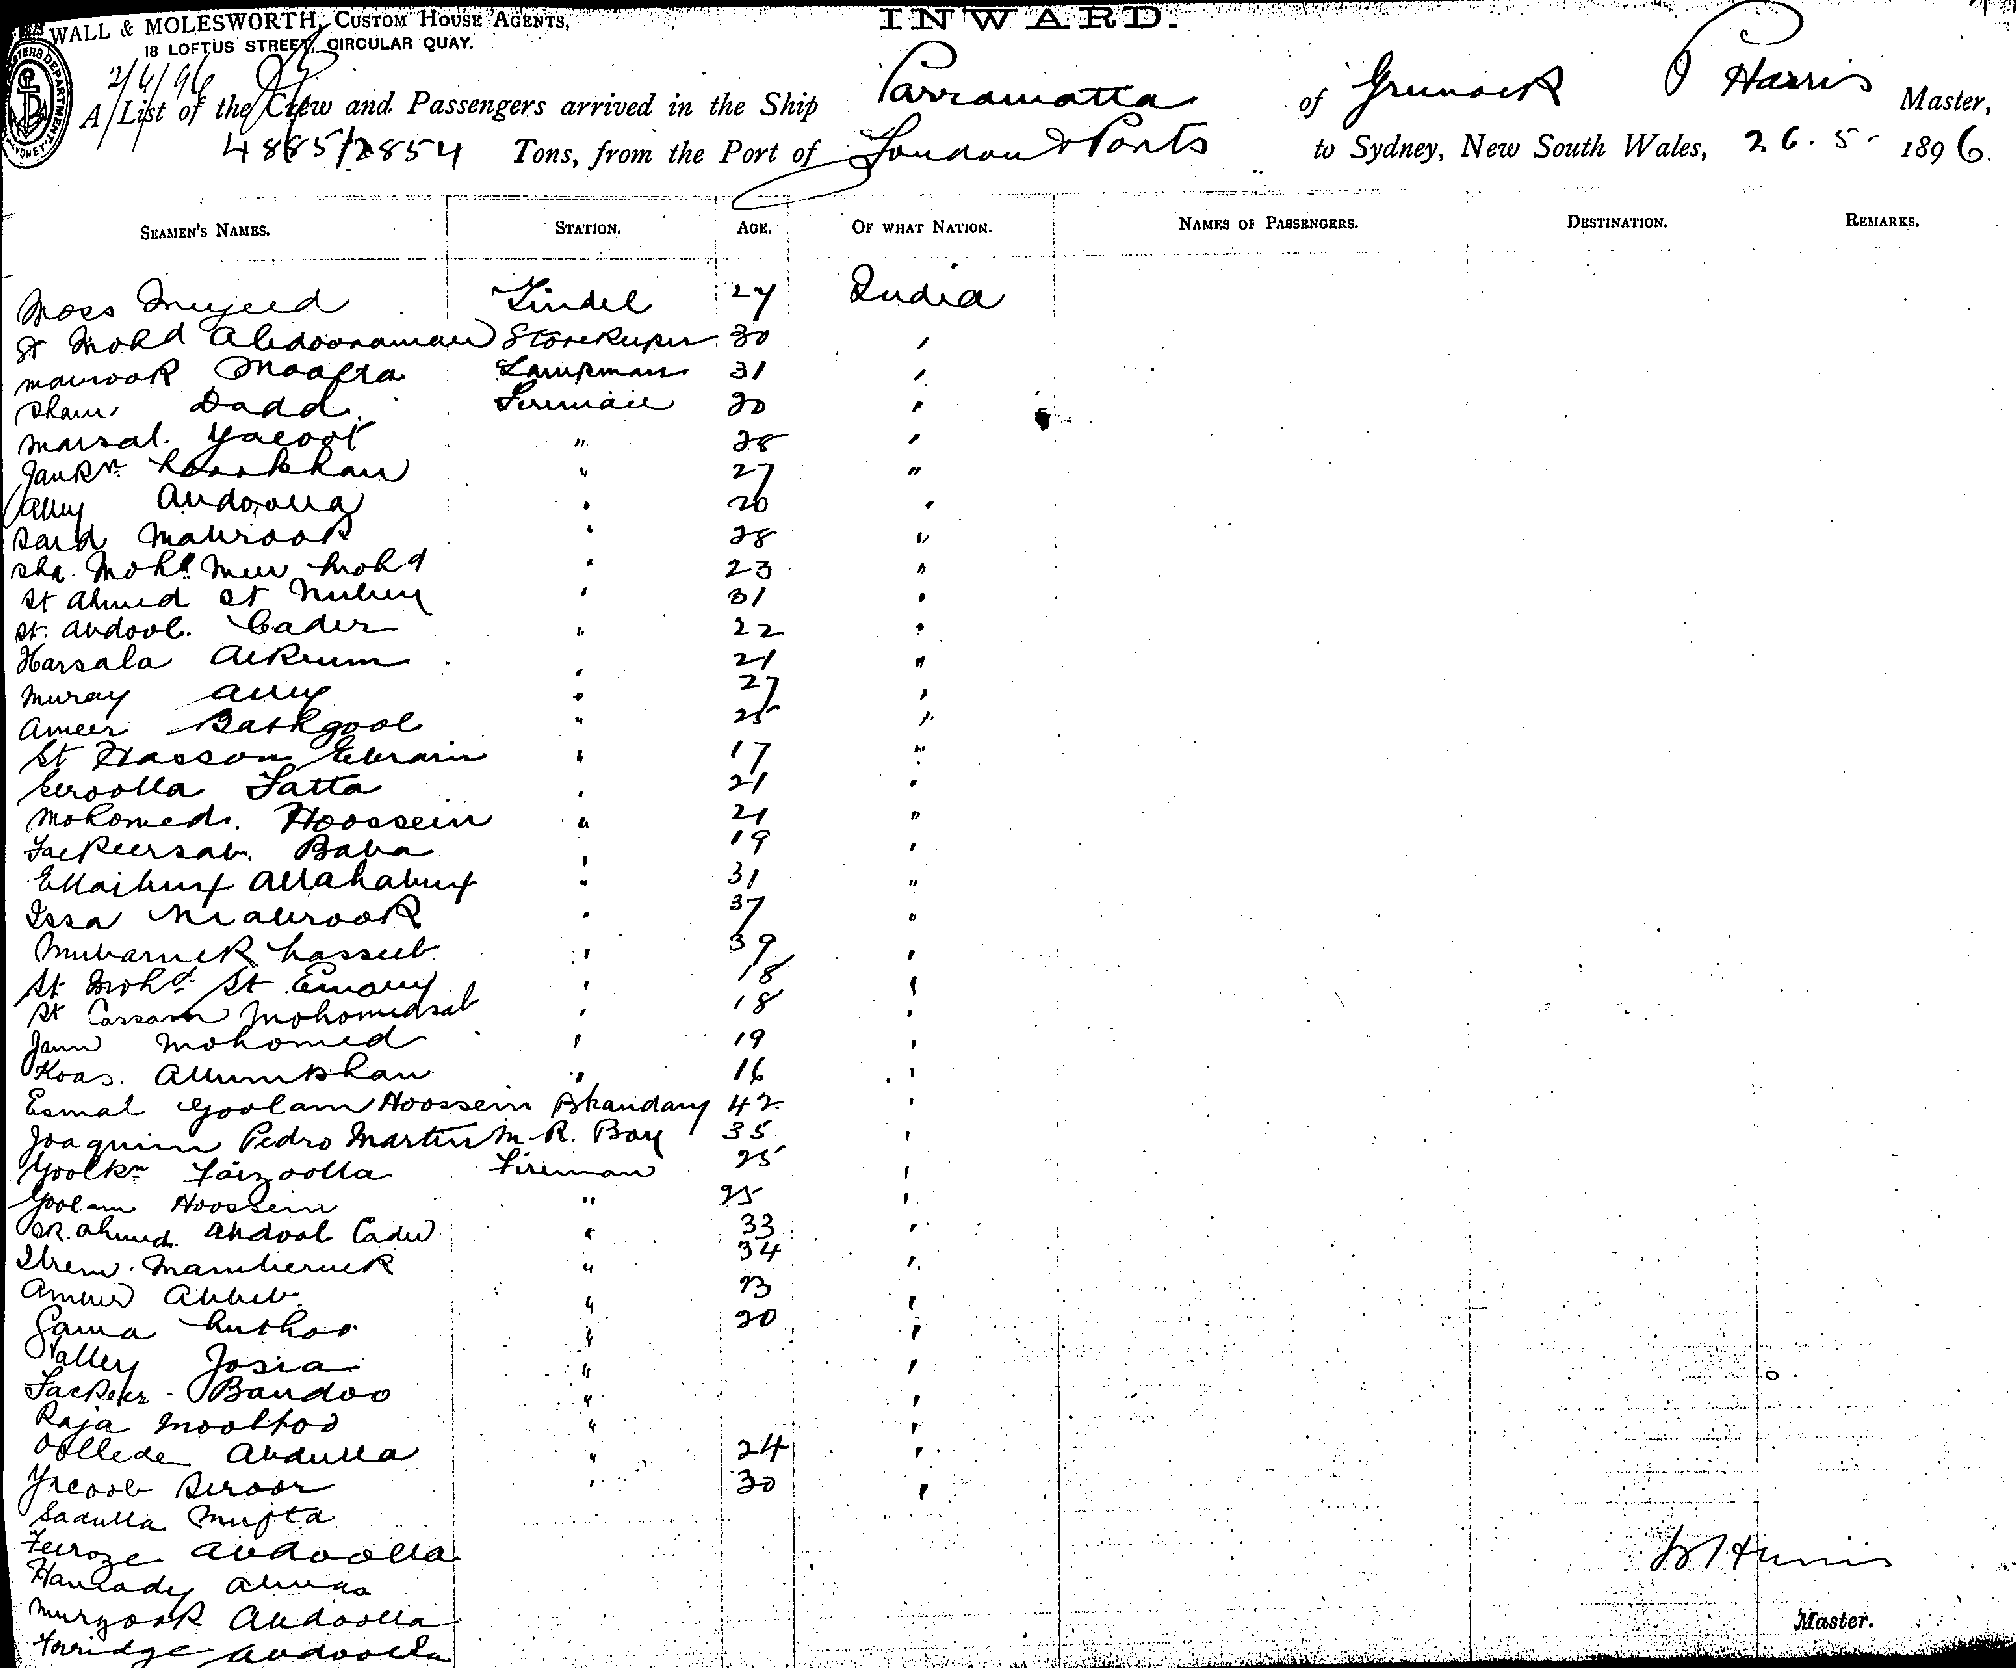 WALL & MOLESWORTH, CUSTOM HOUSE AGENTS,
18 LOFTUS STREET, CIRCULAR QUAY.
INWARD.
2/6/96
A List of the Crew and Passengers arrived in the Ship Parramatta of Greenock P Harris Master,
4885/2854 Tons, from the Port of London & Ports to Sydney, New South Wales, 26.5. 1896.
SEAMEN'S NAMES. STATION. AGE. OF WHAT NATION. NAMES OF PASSENGERS. DESTINATION. REMARKS.
Moss Mujeed Tindel 27 India
St Mohd Abdooraman Storekeeper 30 "
Mabrook Lampman 31 "
Sham Dadd Fireman 30 "
Marsal Yacoot " 28 "
" 27 "
Ally Abdoolla " 20 "
Said Mabrook " 28 "
Sha. Mohd Meer Mohd " 23 "
St Ahmed St " 31 "
St. Abdool. Cader " 22 "
Harsala Akrum " 21 "
Muray Ally " 27 "
Ameer " 25 "
St Hasson Ebraim " 17 "
Seroolla Fatta " 21 "
Mohomed. Hoossein " 21 "
Fackeersab. Baba " 19 "
Ellaibux Allahabux " 31 "
Issa Mabrook " 37 "
Mubaruck " 39 "
St Mohd St Emam " 18 "
St Cassam Mohomedsab " 18 "
Jann Mohomed " 19 "
Allumkhan " 16 "
Esmal Goolam Hoossein Bhandary 42 "
Joaquim Pedro Martin M. R. Boy 35 "
Goolkn Faizoolla Fireman 25 "
Goolam Hoossein " 25 "
Sk. Ahmed Abdool Cader " 33 "
" 34 "
" 23 "
" 20 "
Valley Josia " "
Fackeer Bandoo " "
Raja Mooltoo " "
Abdulla " 24 "
Yacoob Seroor " 30 "
Sadulla Mufta
Feroze Abdoolla
Almas
Murzook Abdoolla
Abdoolla
Harris
Master.